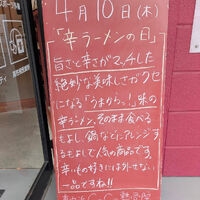 4月10日(木)
「辛ラーメンの日」
旨さと辛さがマッチした
絶妙な美味しさがクセ
になる「うまからっ!」味の
辛ラーメン、そのまま食べる
もよし、鍋などにアレンジす
るもよしで人気の商品です。
辛いもの好きには外せない
一品ですね!!